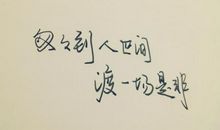 匆匆到人间
渡一场是非